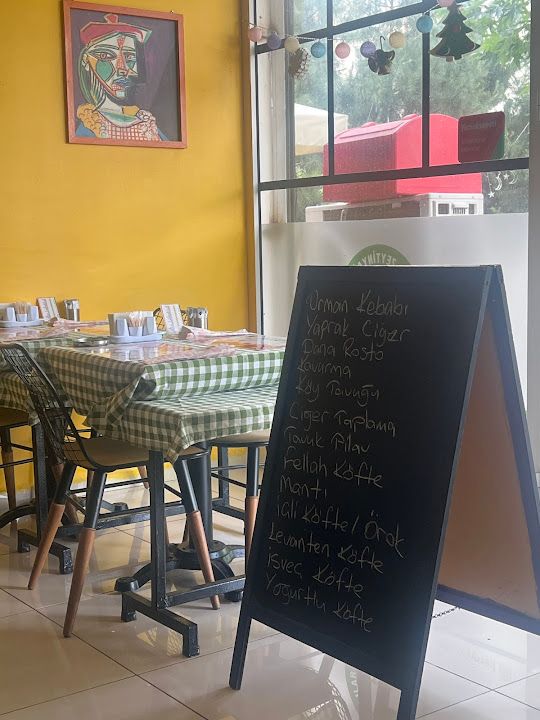 Orman Kebabı
Yaprak Ciğer
Dana Rosto
Kavurma
Köy Tavuğu
Ciğer Taplama
Tavuk Pilav
Fellah Köfte
Mantı
içli Köfte / Oruk
Levanten Köfte
isveç Köfte
Yoğurtlu Köfte